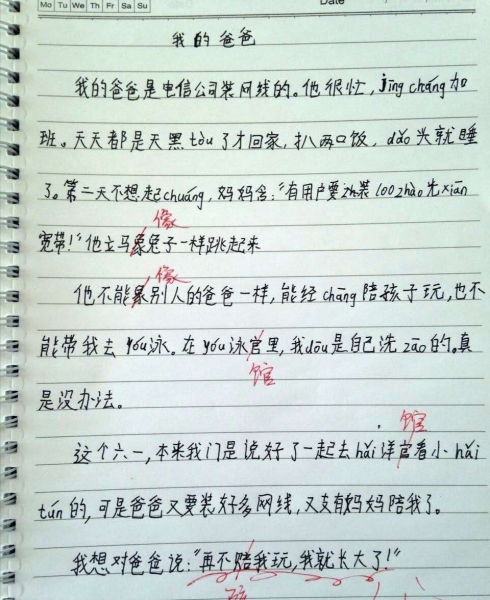 Mo Tu We Th Fr Sa Su
Date
我的爸爸
我的爸爸是电信公司装网线的。他很忙，jīng cháng加
班。天天都是天黑tòu了才回家，扒两口饭，dǎo头就睡
了。第二天不想起chuáng，妈妈舍："有用户要装100zhào光xiān
宽带！"他立马象兔子一样跳起来
像
他不能象别人的爸爸一样，能经cháng陪孩子玩，也不
像
能带我去yóu泳。在yóu泳官里，我dōu是自己洗zǎo的。真
馆
是没办法。
馆
这个六一，本来我门是说好了一起去hǎi洋官看小hǎi
tún的，可是爸爸又要装好多网线，又支有妈妈陪我了。
我想对爸爸说："再不赔我玩，我就长大了！"